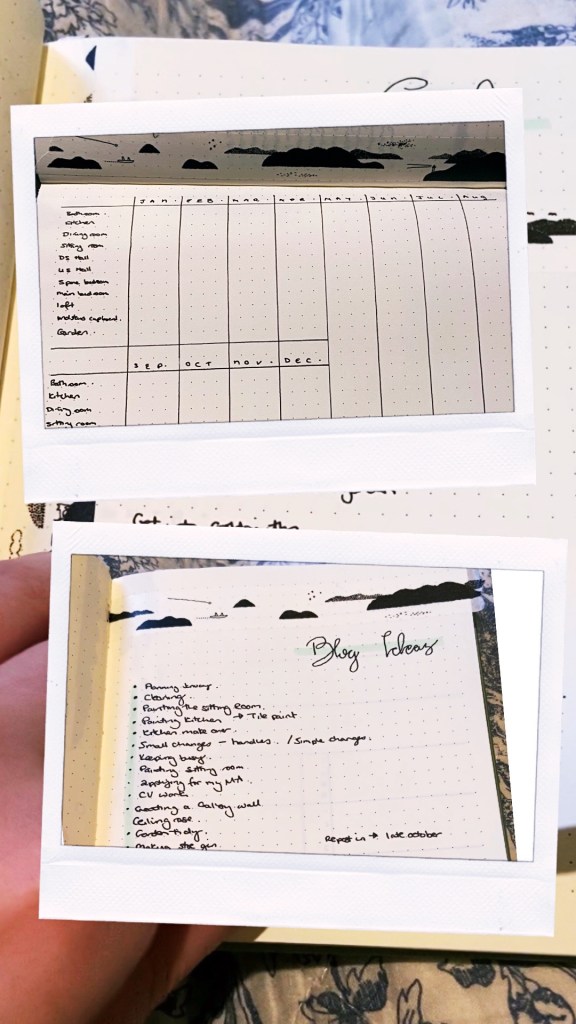 JAN. FEB. MAR. APR. MAY. JUN. JUL. AUG
Bathroom.
Kitchen
Dining room
Sitting room
DS Hall
US Hall
Spare bedroom
main bedroom
loft
cupboard.
Garden.
SEP. OCT NOV. DEC.
Bathroom.
Kitchen
Dining room
Sitting room
Get into
Blog Ideas
• Planning Journey.
• Cleaning.
• Painting the Sitting Room.
• Painting Kitchen → Tile paint
• Kitchen make over.
• Small changes - handles. / Simple changes.
• Keeping busy.
• Painting sitting room.
• applying for my MA.
• CV work
• Creating a Gallery wall
Ceiling rose.
• Garden tidy.
• Making the gin
Repost in → late october